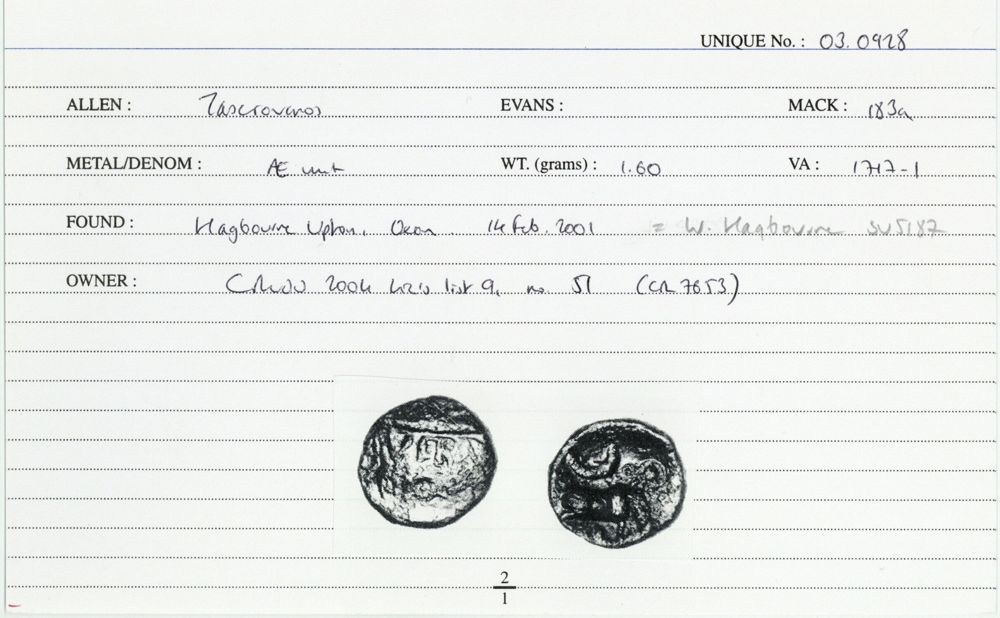 UNIQUE No. : 03.0928
ALLEN : Tasciovanos EVANS : MACK : 183a
METAL/DENOM : Æ unit WT. (grams) : 1.60 VA : 1717-1
FOUND : Hagbourne Upton, Oxon 14 Feb. 2001 = W. Hagbourne SU5187
OWNER : 2004 list 9, no. 51 (CR 7653)
2
1